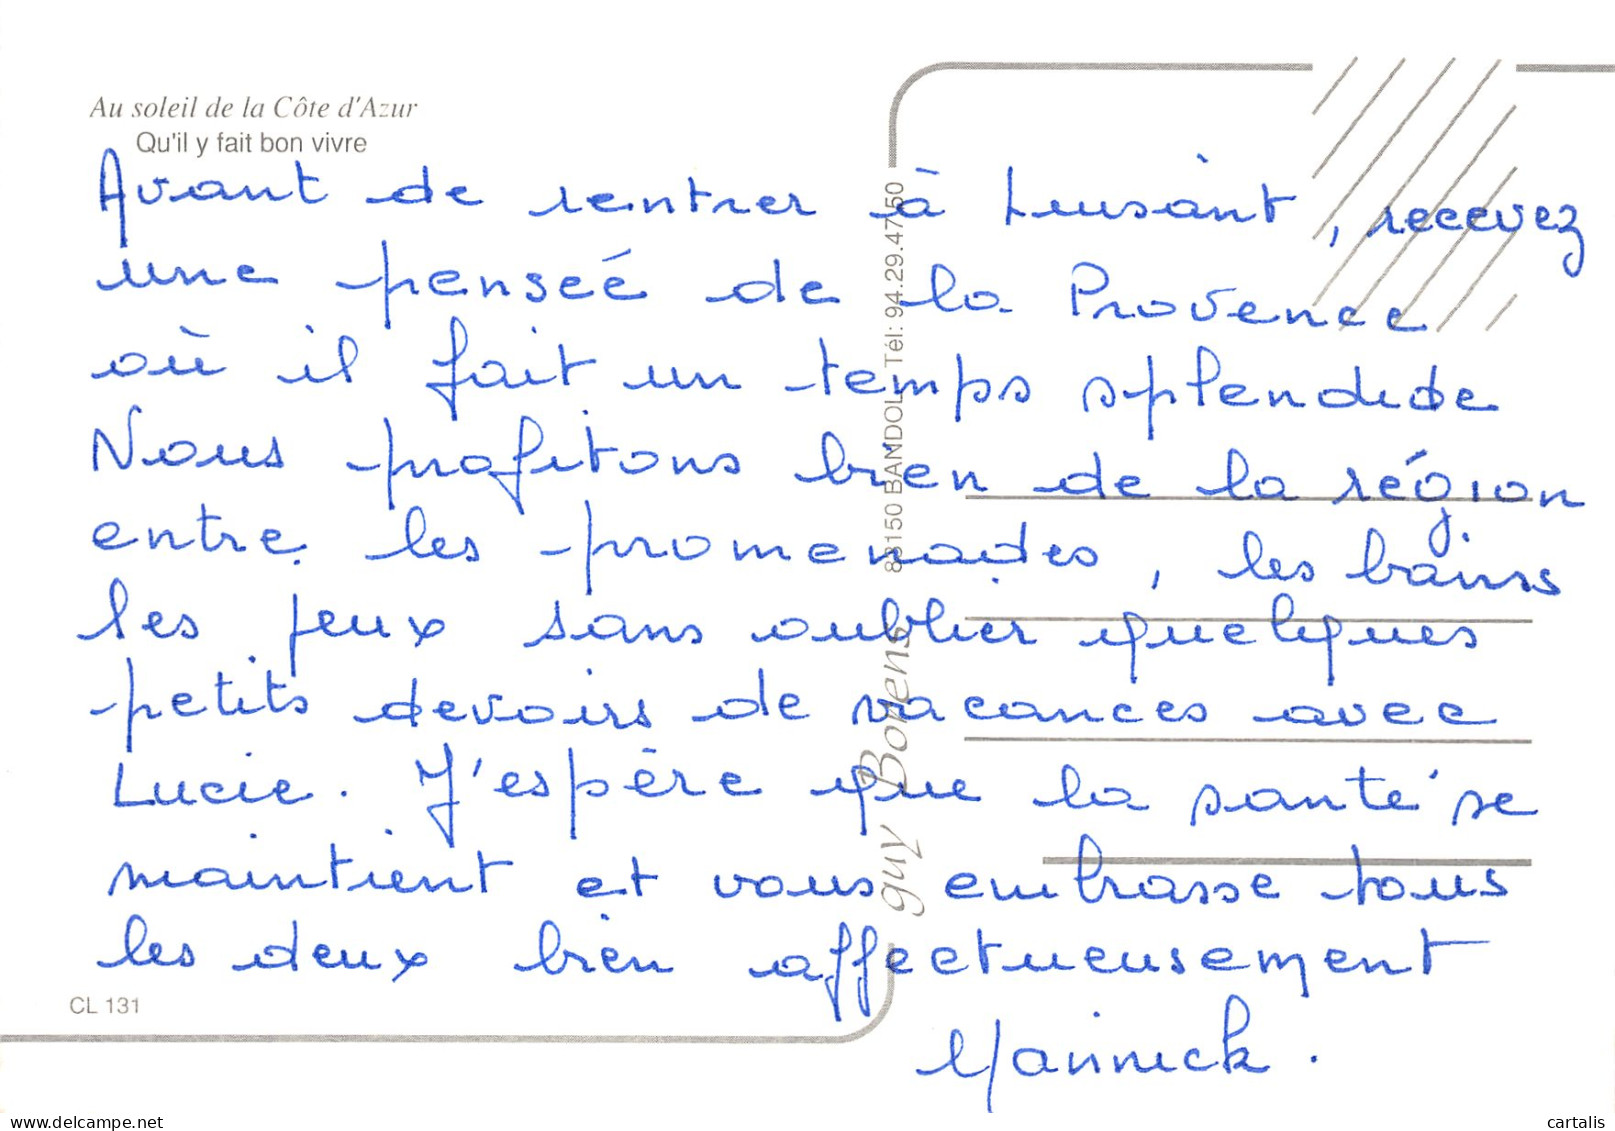 Au soleil de la Côte d'Azur
Qu'il y fait bon vivre
Avant de rentrer à Lusant, recevez
une penseé de la Provence
où il fait un temps splendide
Nous profitons bien de la région
entre les promenades, les bains
les jeux sans oublier quelques
petits devoirs de vacances avec
Lucie. J'espère que la santé se
maintient et vous embrasse tous
les deux bien affectueusement
Yannick.
guy Bonens 83150 BANDOL Tél: 94.29.47.50
CL 131
https://www.delcampe.net
cartalis